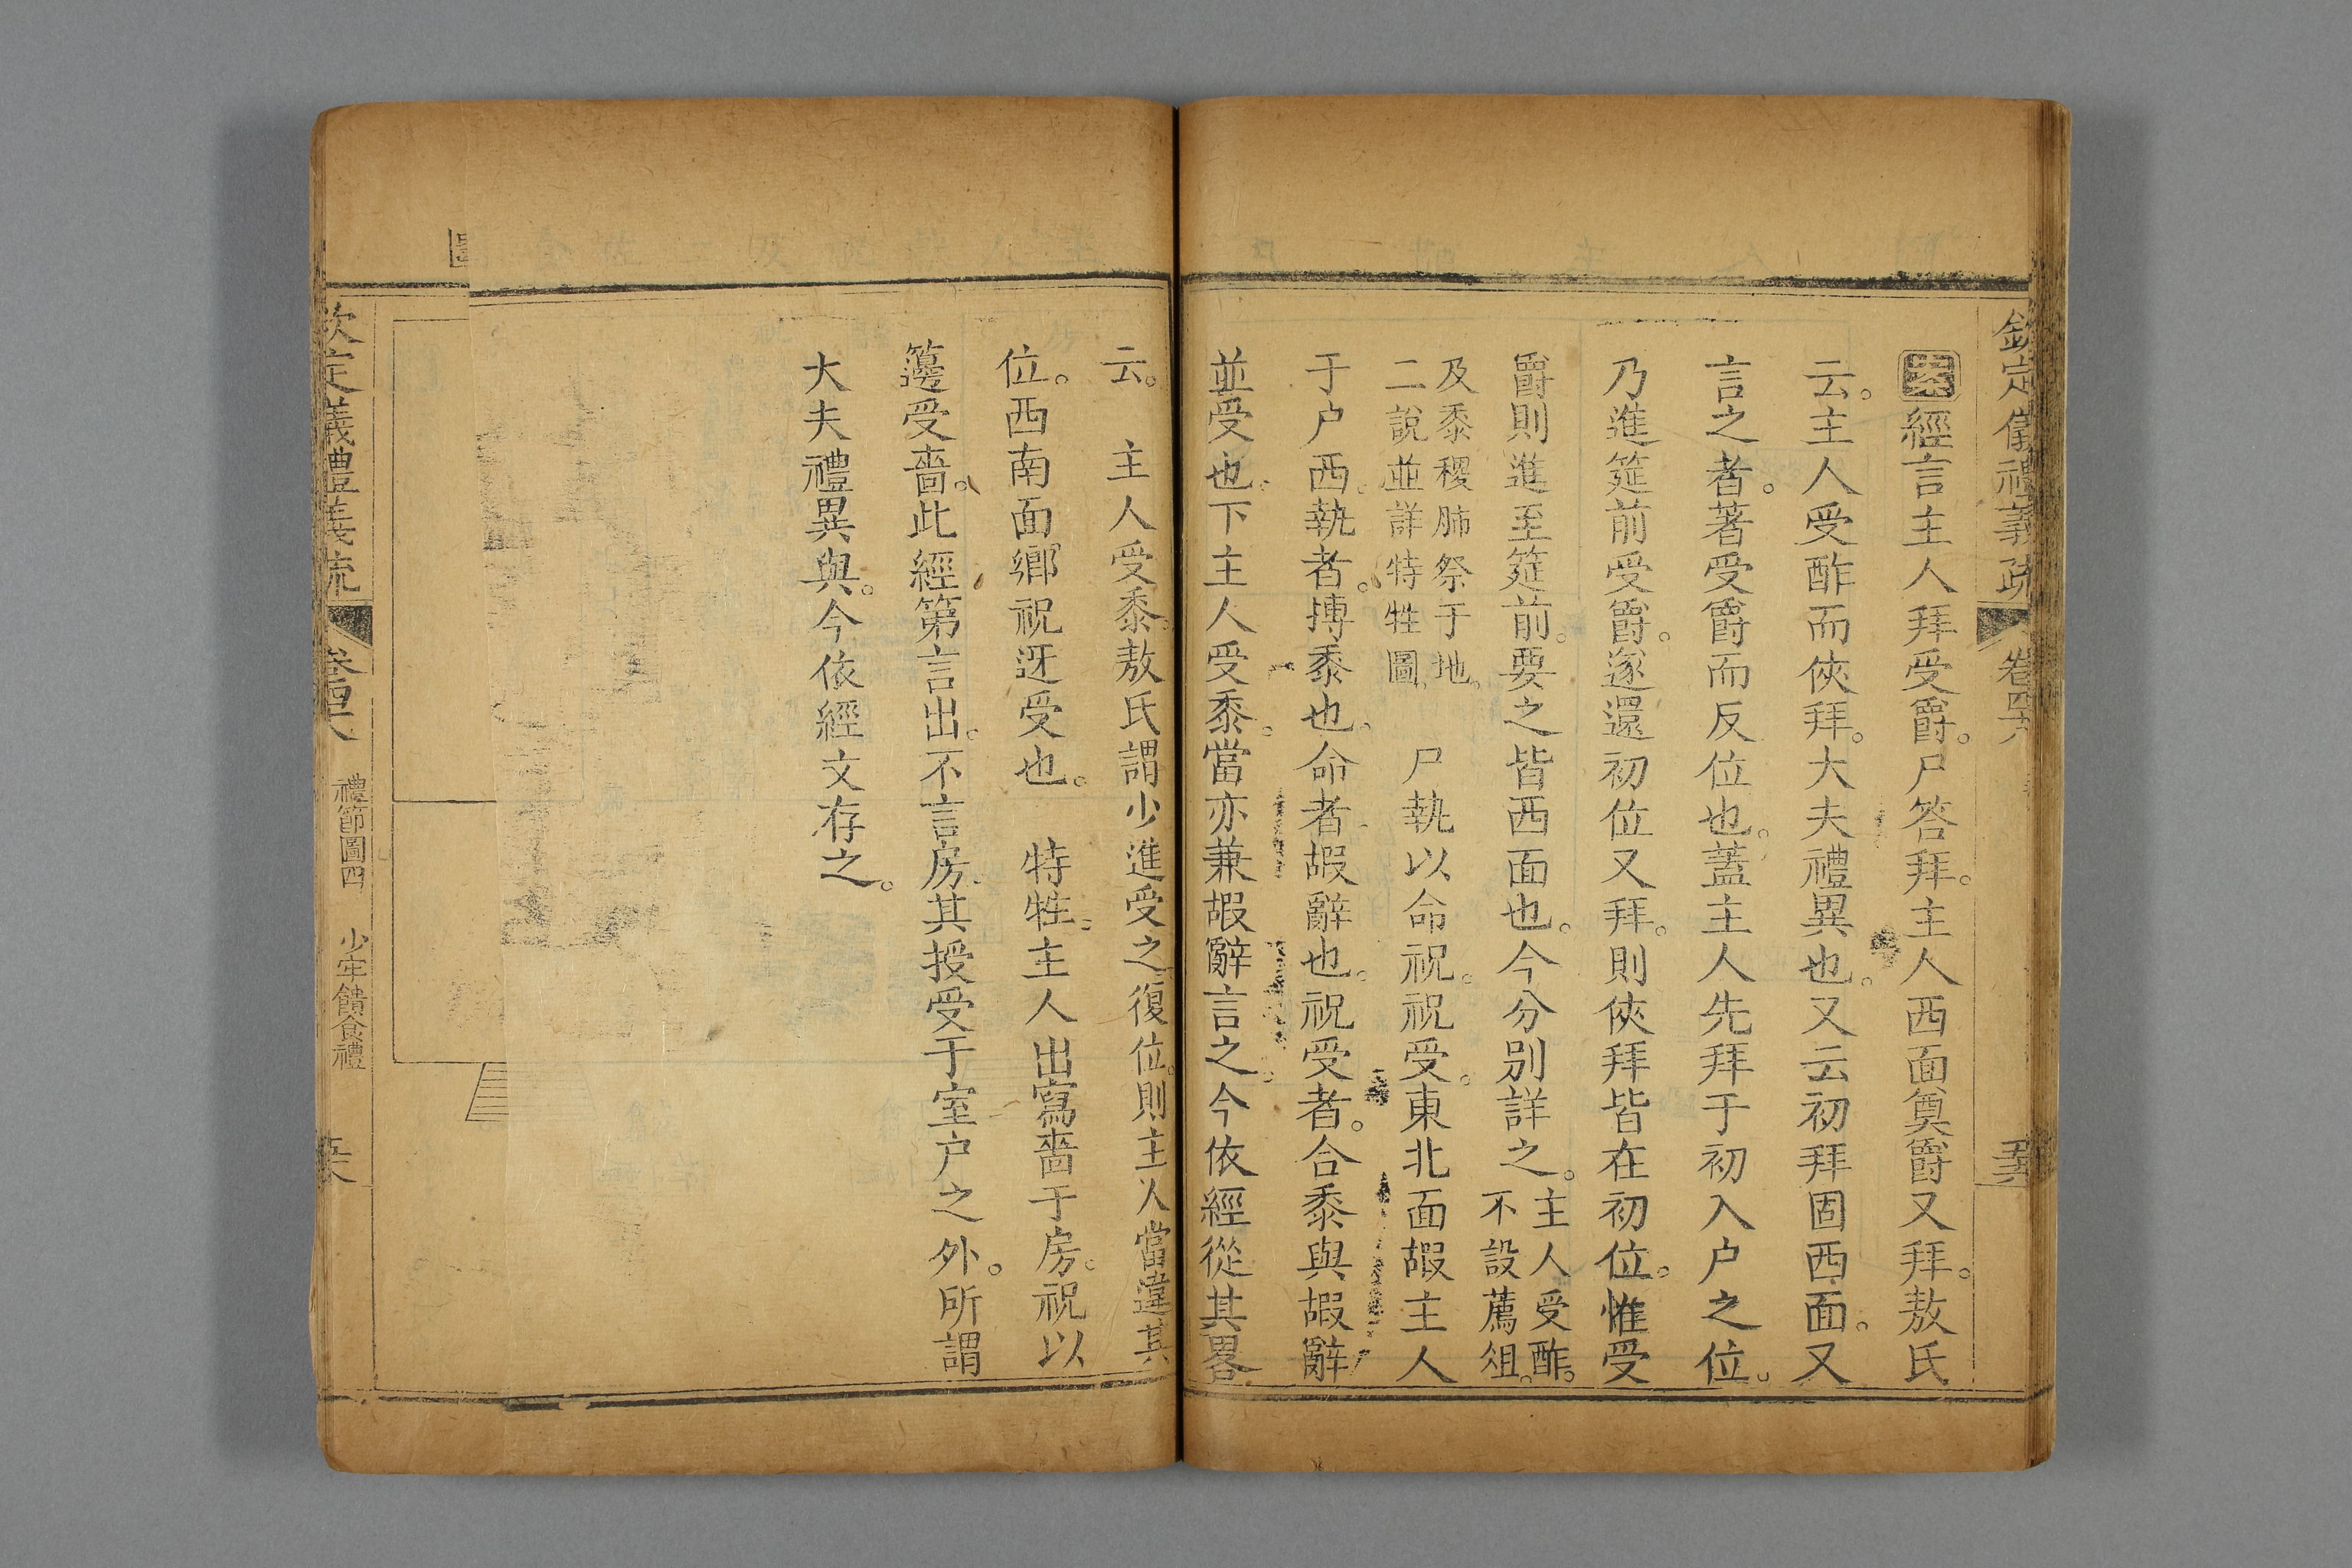 欽定儀禮義疏 卷四十八
案經言主人拜受爵。尸答拜。主人西面奠爵又拜。敖氏
云。主人受酢而俠拜。大夫禮異也。又云初拜固西面。又
言之者。著受爵而反位也。蓋主人先拜于初入户之位。
乃進筵前受爵。遂還初位又拜。則俠拜皆在初位。惟受
爵則進至筵前。要之皆西面也。今分别詳之。主人受酢。
不設薦俎。
及黍稷肺祭于地。
二說並詳特牲圖。
尸執以命祝。祝受。東北面嘏主人
于户西。執者。摶黍也。命者嘏辭也。祝受者。合黍與嘏辭
並受也。下主人受黍。當亦兼嘏辭言之。今依經從其畧
云。 主人受黍。敖氏謂少進受之復位。則主人當違其
位。西南面鄉祝迓受也。 特牲。主人出寫嗇于房。祝以
籩受嗇。此經第言出。不言房。其授受于室户之外。所謂
大夫禮異與。今依經文存之。
欽定義禮義疏 卷四十八 禮節圖四 少牢饋食禮